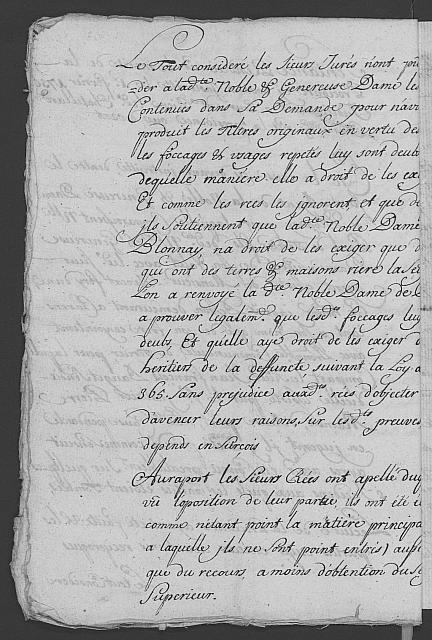 Le Tout consideré les Sieurs Jurés nont pu
der a lad.te Noble & Genereuse Dame les
Contenües dans Sa Demande pour navo
produit les Titres originaux en vertu des
les foccages & usages repetés luy sont deub
de quelle maniere elle a droit de les exi
Et comme les rées les ignorent et que de
jls Soutiennent que lad.te Noble Dame
Blonnay, na droit de les exiger que d
qui ont des terres & maisons riere la Se
Lon a renvoyé la d.te Noble Dame de
a prouver ligalem.t que lesd.s foccages luy
deubs, Et qu'elle aye droit de les exiger d
heritiers de la deffuncte suivant la Loy
365. Sans prejudice auxd.s rées d'objecter
d'avencer leurs raisons, Sur lesd.tes preuves
depends en Surcois
Au raport les Sieurs Rées ont apellé du
vû loposition de leur partie, ils ont été
comme nétant point la matiére principa
a laquelle jls ne Sont point entrés) aus
que du recours, a moins d'obtention du
Superieur.